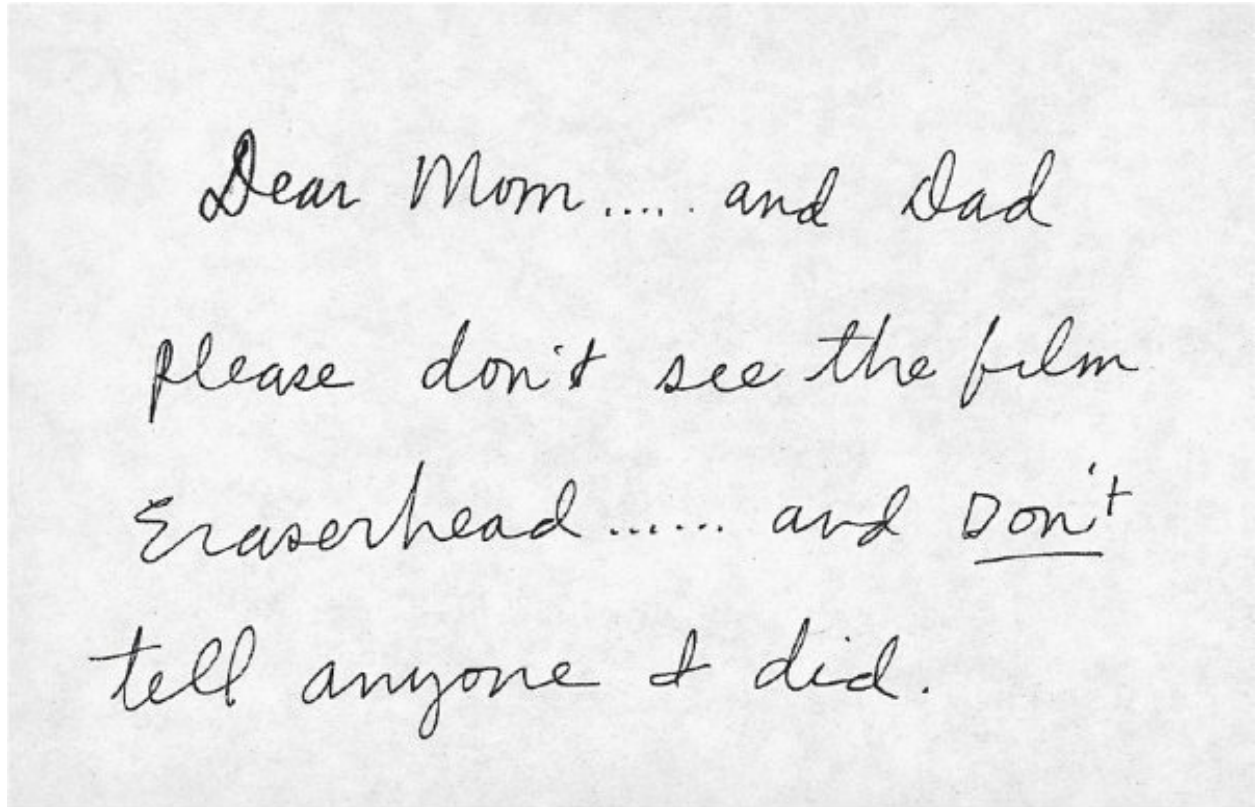 Dear Mom..... and Dad
please don't see the film
Eraserhead...... and Don't
tell anyone I did.